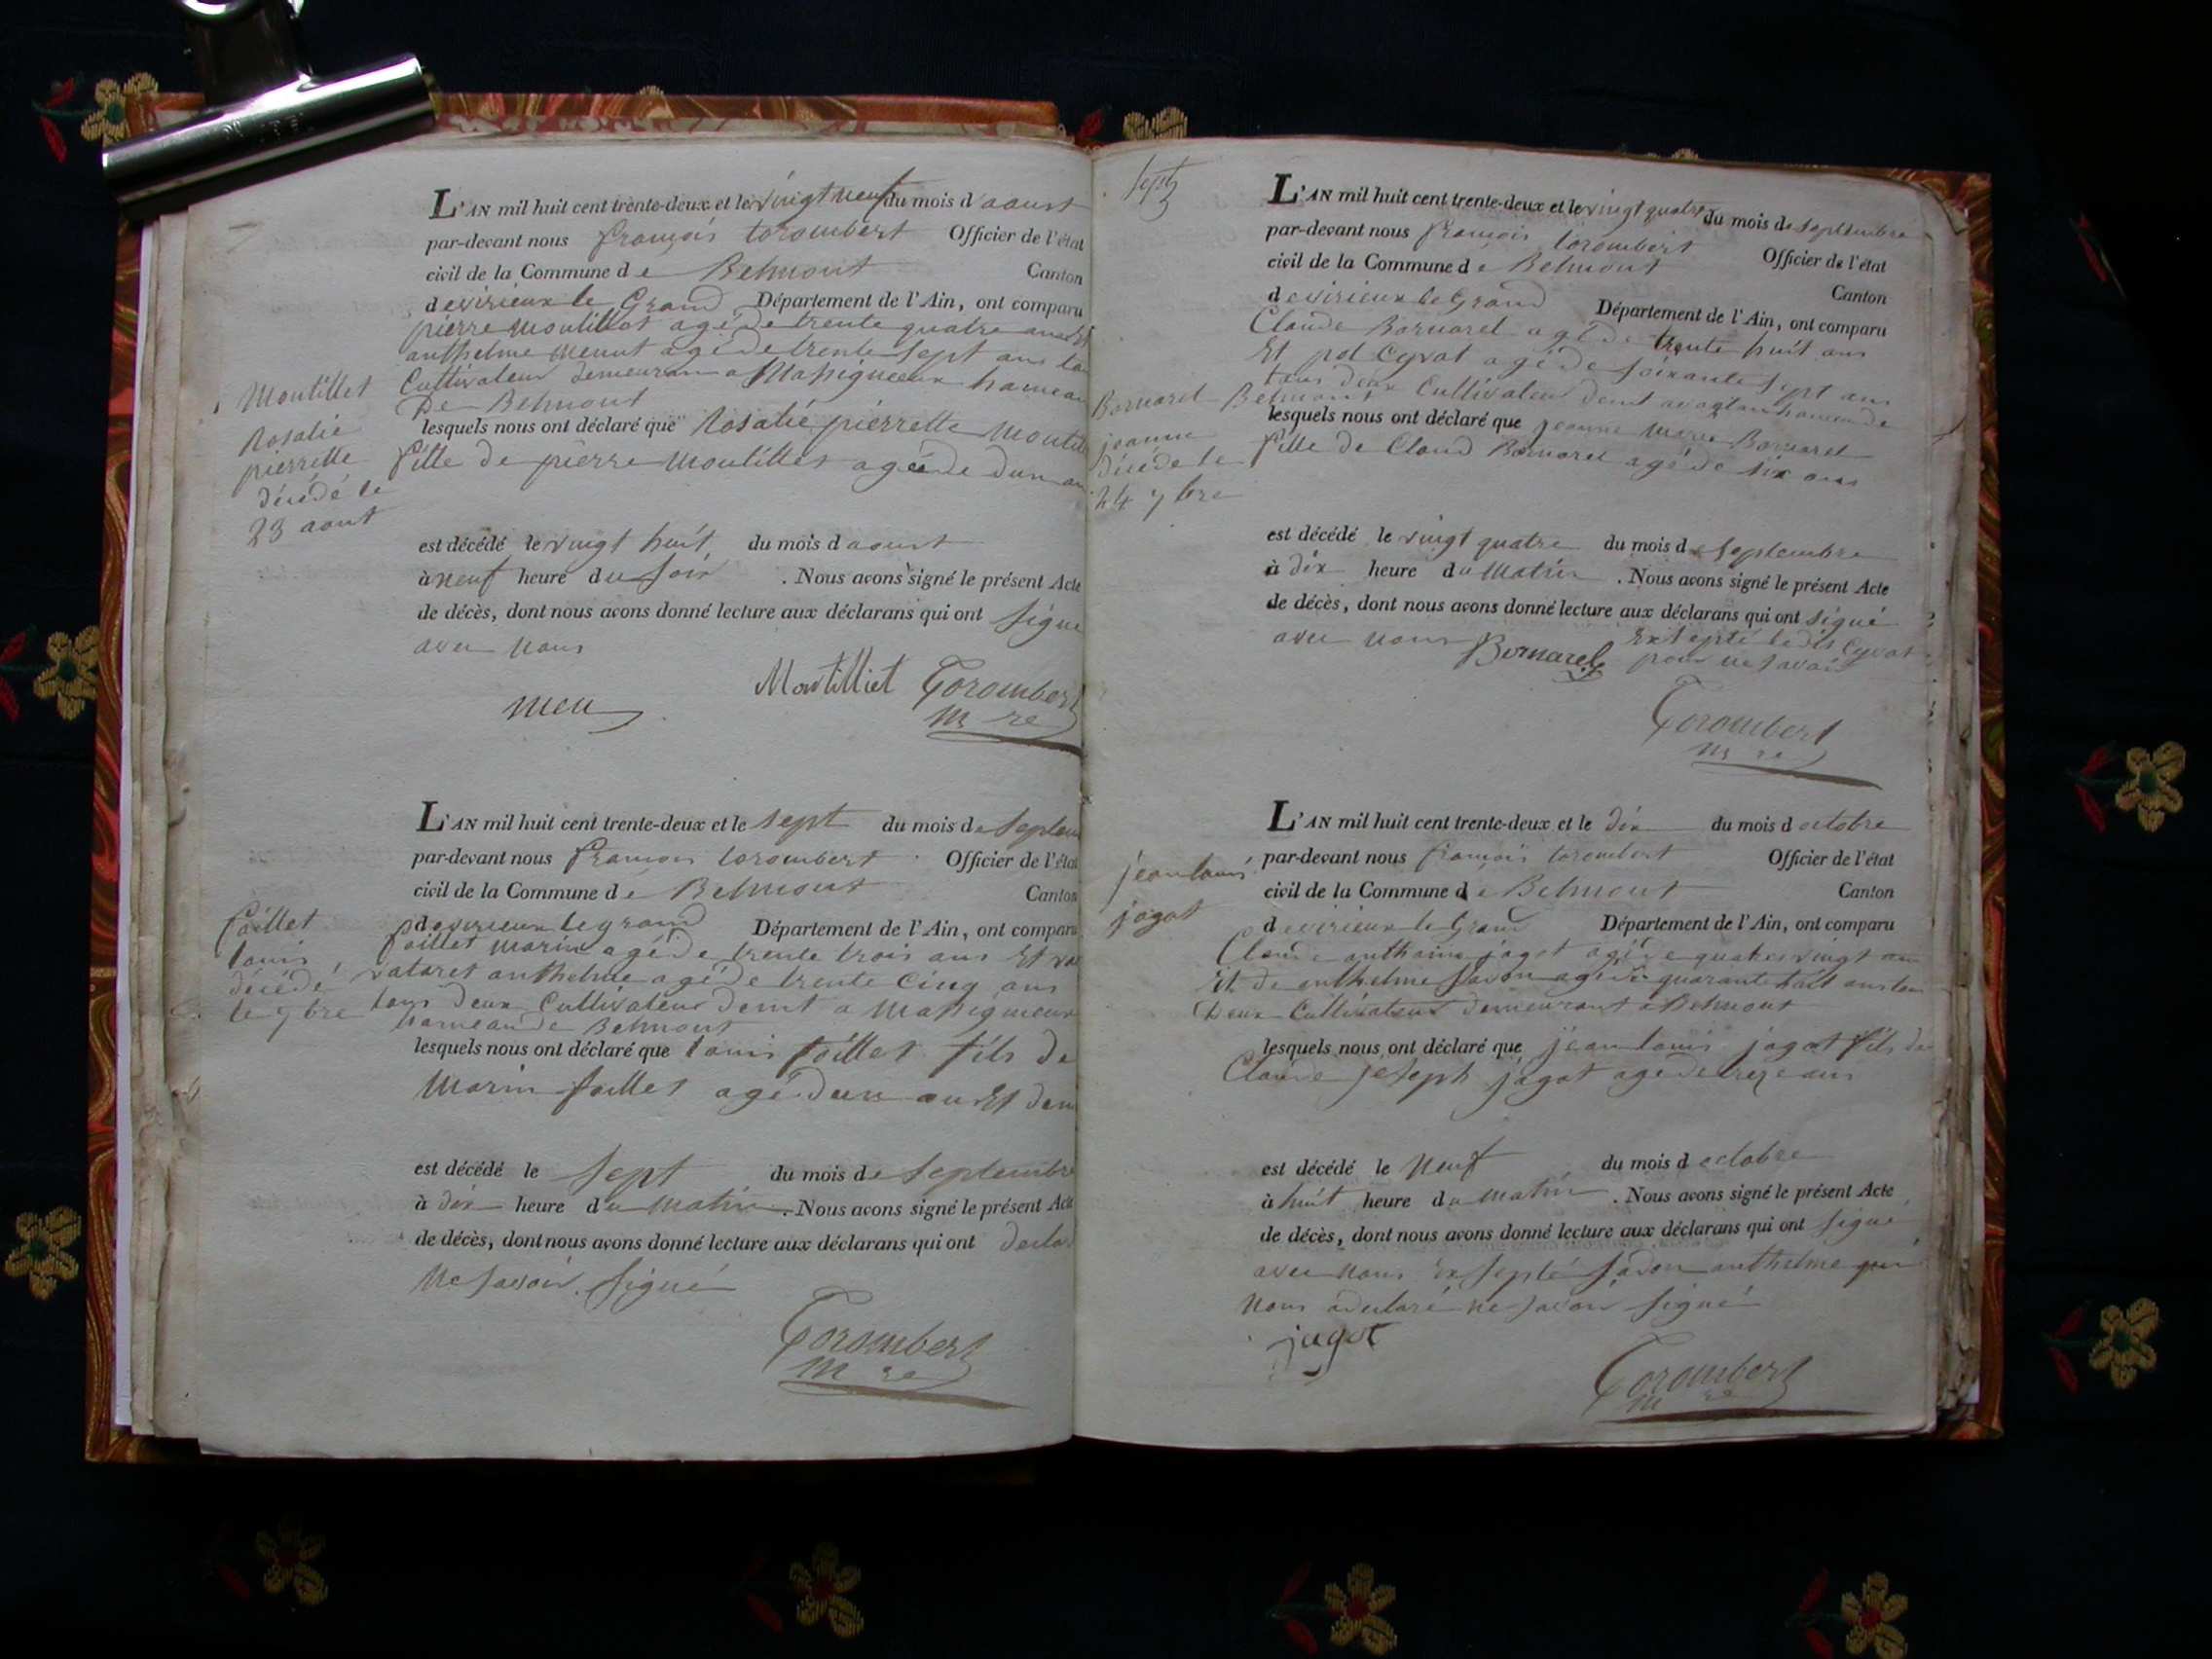 L'AN mil huit cent trente-deux et le vingt neuf du mois d aoust
par-devant nous françois torombert Officier de l'état
civil de la Commune de Belmont Canton
de virieux le Grand Département de l'Ain, ont comparu
pierre Moutillet agé de trente quatre ans Et
anthelme Menut agé de trente sept ans
Cultivateur demeuran a Massigneux hameau
De Belmont
lesquels nous ont déclaré que Rosalie pierrette
fille de pierre Moutillet agée de dun an
Moutillet
Rosalie
pierrette
décédé le
28 aout
est décédé le vingt huit du mois d aoust
à neuf heure du soir . Nous avons signé le présent Acte
de décès, dont nous avons donné lecture aux déclarans qui ont signé
avec nous
Montilliet Torombert
menu m re
L'AN mil huit cent trente-deux et le sept du mois de
par-devant nous françois torombert Officier de l'état
civil de la Commune de Belmont Canton
de virieux le grand Département de l'Ain, ont comparu
foillet marin agé de trente trois ans Et
vataret anthelme agé de trente cinq ans
tous deux Cultivateur demt a Massigneux
hameau de Belmont
lesquels nous ont déclaré que louis foillet fils de
Marin foillet agé dun an Et
foillet
louis
décédé
le 7 bre
est décédé le sept du mois de septembre
à dix heure du matin . Nous avons signé le présent Acte
de décès, dont nous avons donné lecture aux déclarans qui ont
ne savoir signé
Torombert
m re
L'AN mil huit cent trente-deux et le vingt quatre du mois de septembre
par-devant nous françois torombert Officier de l'état
civil de la Commune de Belmont Canton
de virieux le Grand Département de l'Ain, ont comparu
Claude Bornarel agé de trente huit ans
Et Cyvat agé de soixante sept ans
tous deux Cultivateur demt hameau de
Belmont
lesquels nous ont déclaré que jeanne Marie Bornarel
fille de Claud Bornarel agé de six ans
Bornarel
jeanne
décéde le
24 7 bre
est décédé le vingt quatre du mois de septembre
à dix heure du Matin . Nous avons signé le présent Acte
de décès, dont nous avons donné lecture aux déclarans qui ont signé
avec nous Exsepté ledit Cyvat
Bornarel pour ne savoir
Torombert
m re
L'AN mil huit cent trente-deux et le dix du mois d octobre
par-devant nous françois torombert Officier de l'état
civil de la Commune de Belmont Canton
de virieux le Grand Département de l'Ain, ont comparu
Claude anthoine jagot agé de quatre vingt an
Et de anthelme agé de quarante huit ans
Deux Cultivateur demeurant a Belmont
lesquels nous ont déclaré que jean louis jagot fils de
Claude joseph jagot agé de treze ans
jean louis
jagot
est décédé le neuf du mois d octobre
à huit heure du matin . Nous avons signé le présent Acte
de décès, dont nous avons donné lecture aux déclarans qui ont signé
avec nous Exsepté anthelme qui
nous a declaré ne savoir signé
jagot
Torombert
m re